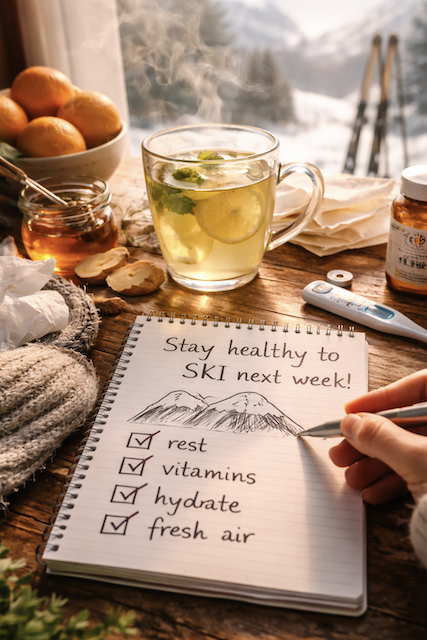 Stay healthy to
SKI next week!
rest
vitamins
hydrate
fresh air